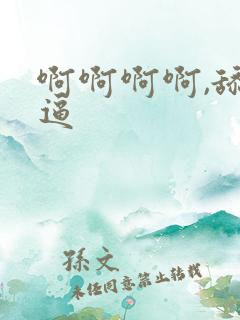 啊啊啊啊,舔
逼
孫文
未经同意禁止转载